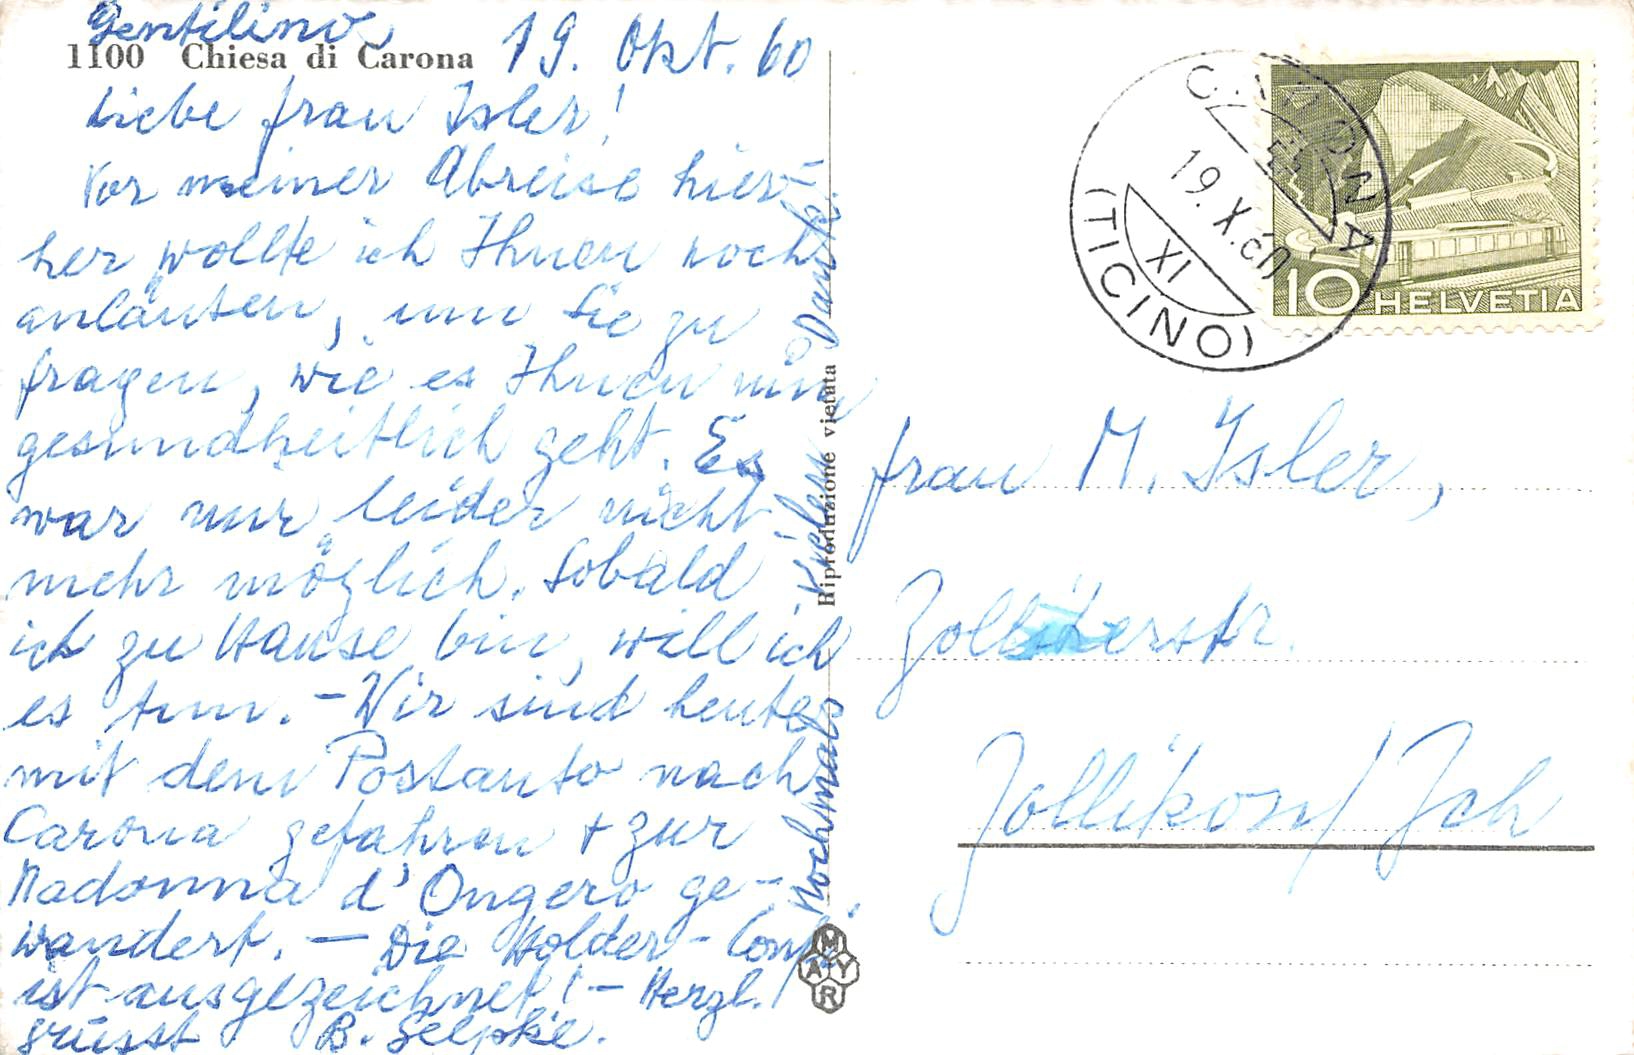 Gentilino, 19. Okt. 60
1100 Chiesa di Carona
Liebe Frau Isler!
Vor meiner Abreise hier-
her wollte ich Ihnen noch
anläuten, um Sie zu
fragen, wie es Ihnen nun
gesundheitlich geht. Es
war mir leider nicht
mehr möglich. Sobald
ich zu Hause bin, will ich
es tun. – Wir sind heute
mit dem Postauto nach
Carona gefahren + zur
Madonna d'Ongero ge-
wandert. – Die Holder-Conf.
ist ausgezeichnet! – Herzl.
grüsst B. Seepke.
Nochmals vielen Dank!
Riproduzione vietata
MAYR
CARONA
19.X.60
XI
(TICINO)
10 HELVETIA
Frau M. Isler,
Zollikerstr.
Zollikon/Zch